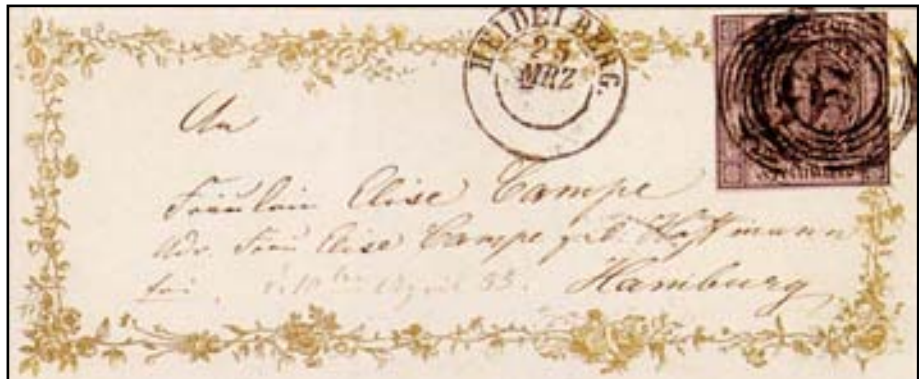 HEIDELBERG.
25
MRZ
An
Fräulein Elise Campe
Adr. Frau Elise Campe geb. Hoffmann
frei.
April 53.
Hamburg